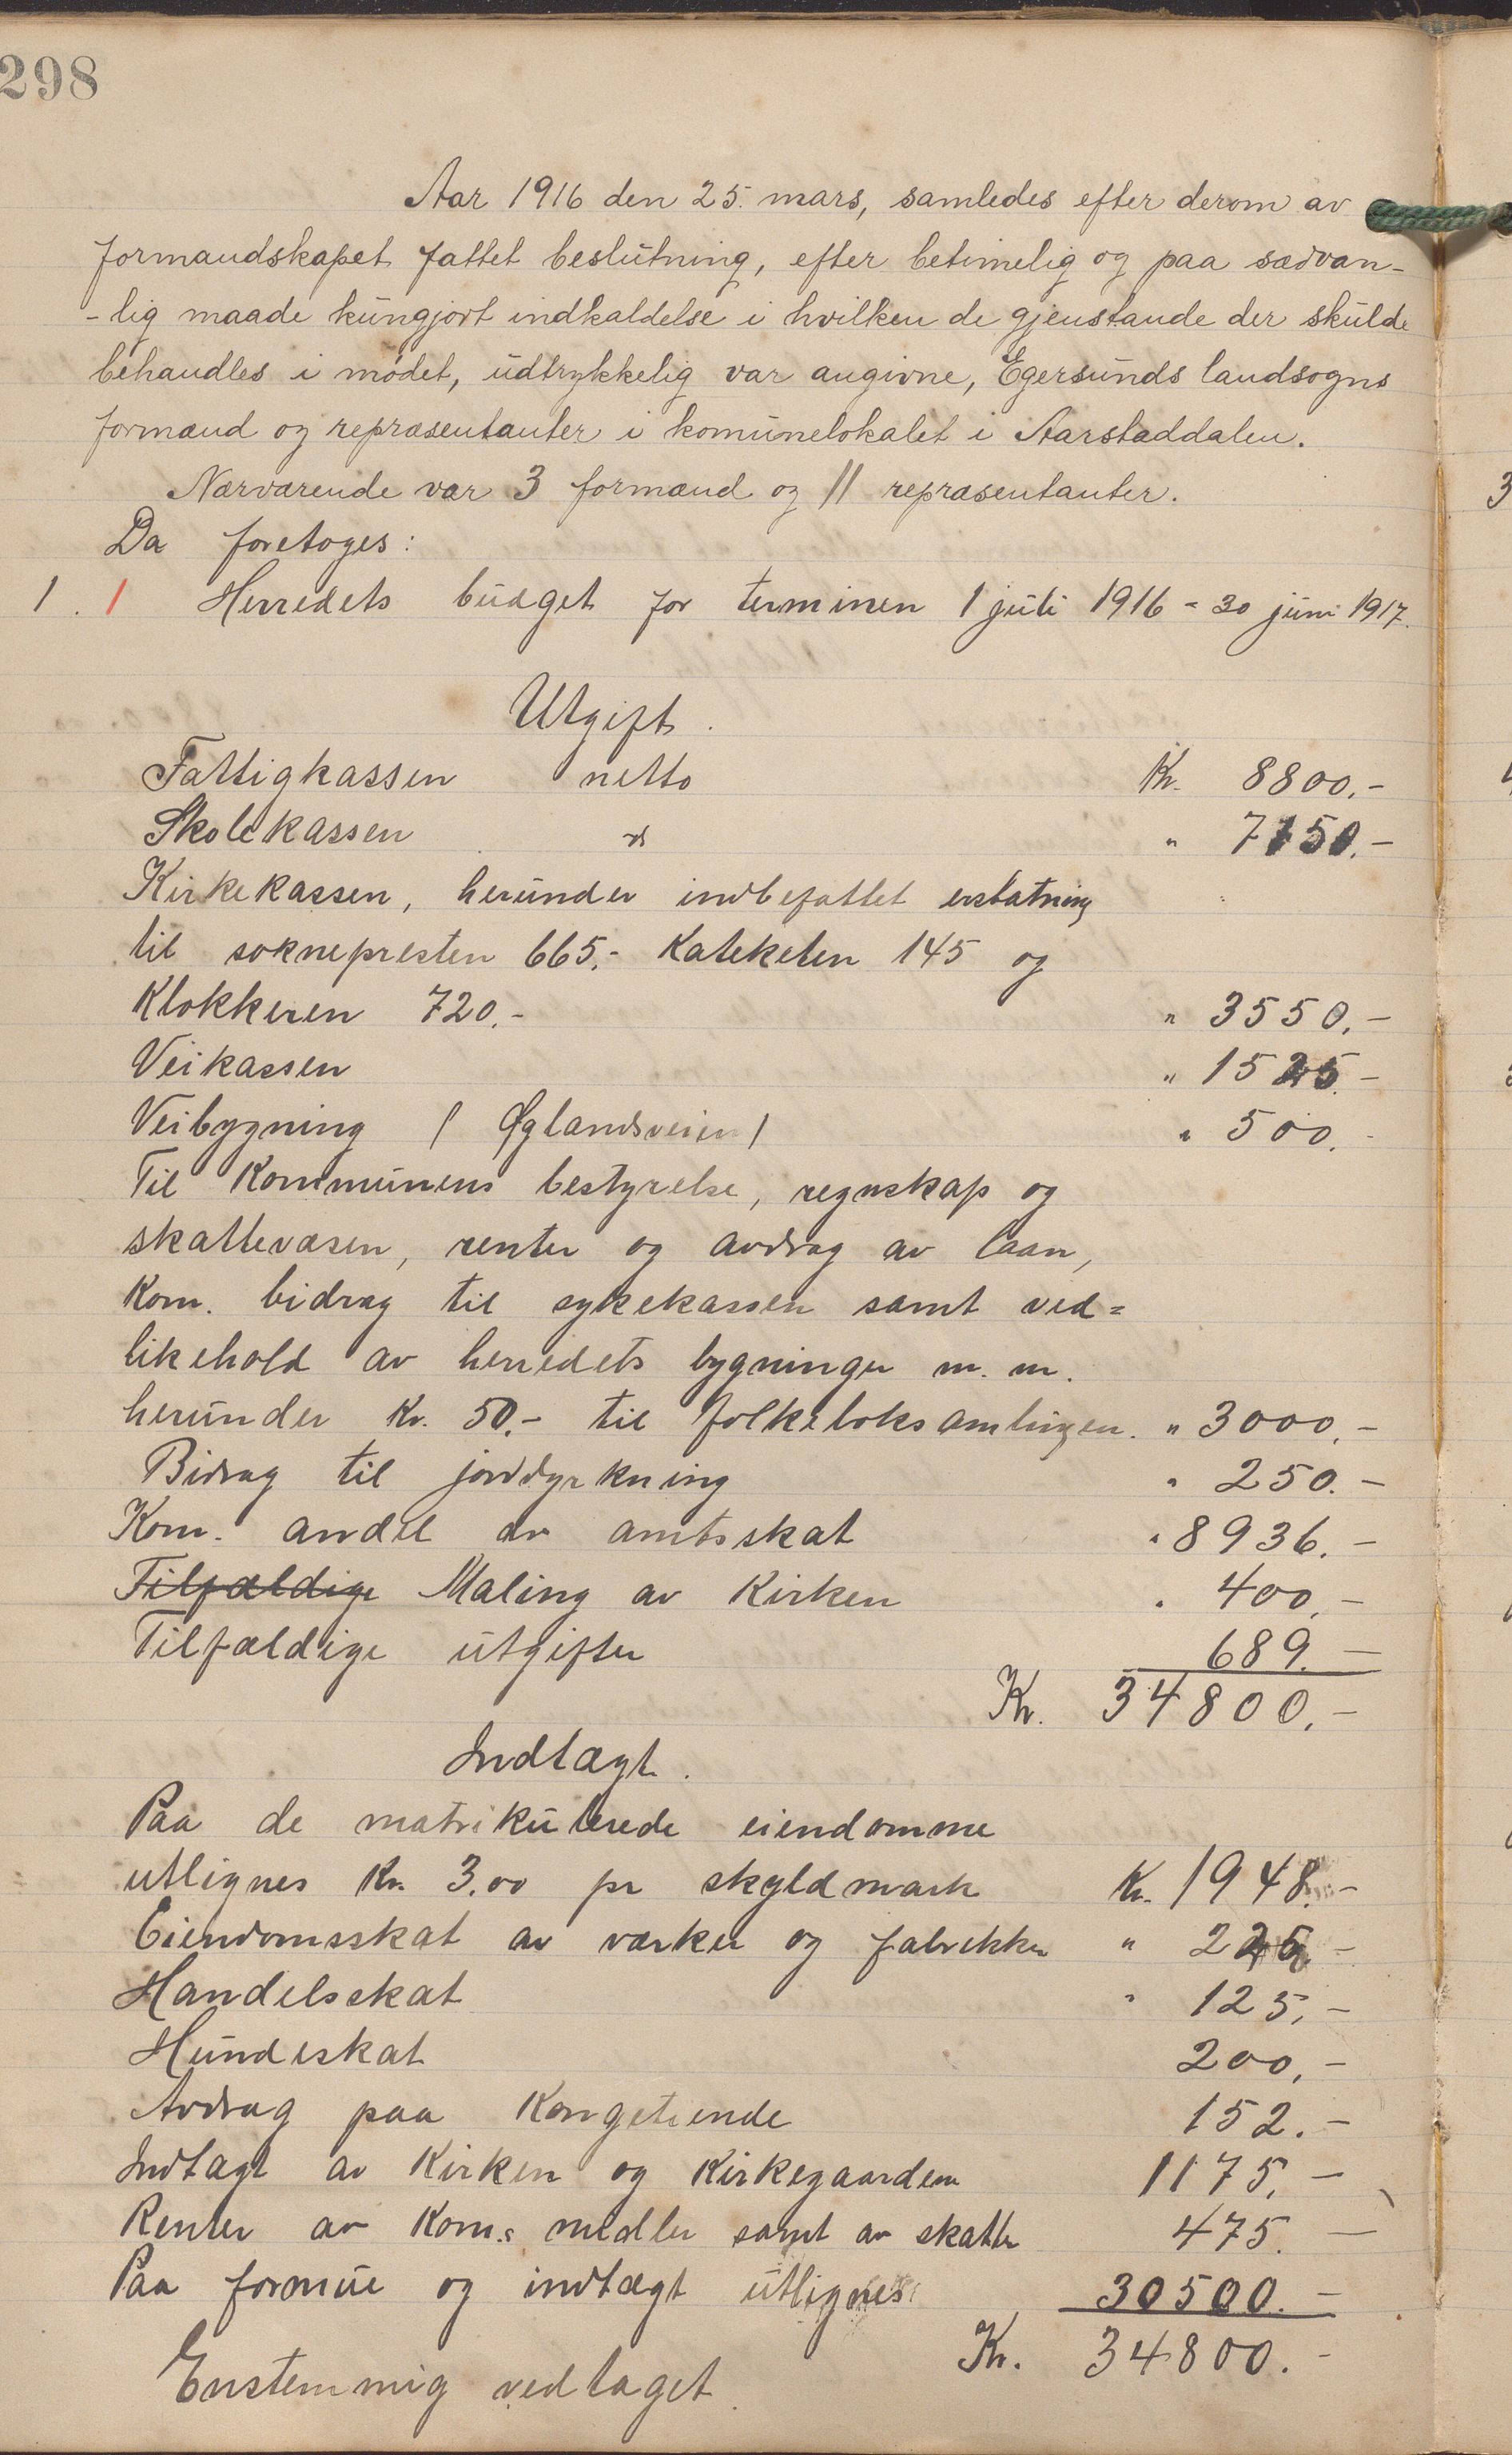 298
Aar 1916 den 25. mars, samledes efter derom av
formandskapet fattet beslutning, efter betimelig og paa sædvan-
-lig maade kungjort indkaldelse i hvilken de gjenstande der skulde
behandles i mødet, udtrykkelig var angivne, Egersunds landsogns
formænd og repræsentanter i komunelokalet i Aarstaddalen.
Nærværende var 3 formænd og 11 repræsentanter.
Da foretoges:
1. 1 Herredets budget for terminen 1 juli 1916 - 30 juni 1917.
Utgift.
Fattigkassen netto Kr. 8800.-
Skolekassen d " 7150.-
Kirkekassen, herunder indbefattet erstatning
til soknepresten 665.- Kateketen 145 og
Klokkeren 720.- " 3550.-
Veikassen " 1525.-
Veibygning (Øglandsveien) " 500.-
Til Kommunens bestyrelse, regnskap og
skattevæsen, renter og avdrag av laan,
Kom. bidrag til sykekassen samt ved=
likehold av herredets bygninger m. m.
herunder Kr. 50.- til folkeboksamlingen. " 3000.-
Bidrag til jorddyrkning " 250.-
Kom. andel av amtsskat " 8936.-
Tilfældige Maling av Kirken " 400.-
Tilfældige utgifter 689.-
Kr. 34800.-
Indtægt.
Paa de matrikulerede eiendomme
utlignes Kr. 3.00 pr skyldmark Kr. 1948.-
Eiendomsskat av værker og fabrikker " 225.-
Handelsskat " 125.-
Hundeskat 200.-
Avdrag paa Kongetiende 152.-
Indtægt av Kirken og Kirkegaarden 1175.-
Renter av Kom.s midler samt av skatter 475.-
Paa formue og indtægt utlignes 30500.-
Kr. 34800.-
Enstemmig vedtaget.